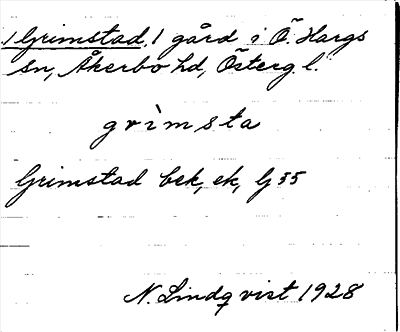 /Grimstad,/ gård i Ö. Hargs
sn, Åkerbo hd, Österg. l.
grìmsta
Grimstad bek, ek, G 35
N. Lindqvist 1928